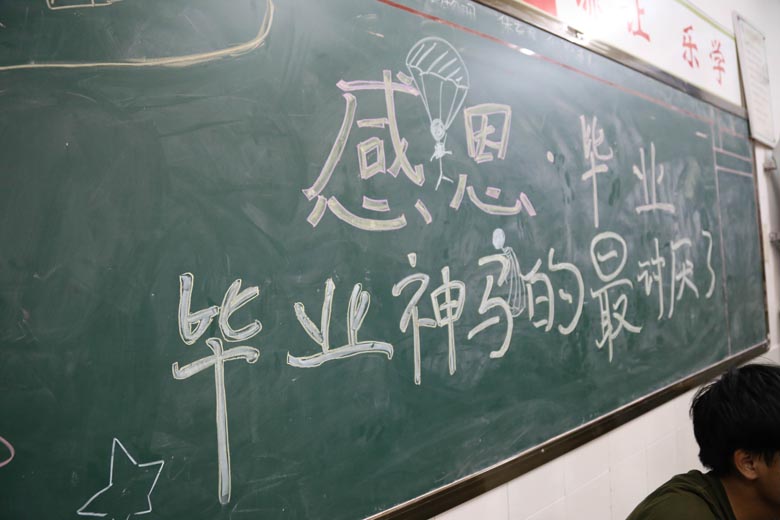 乐学
感恩·毕业
毕业神马的最讨厌了